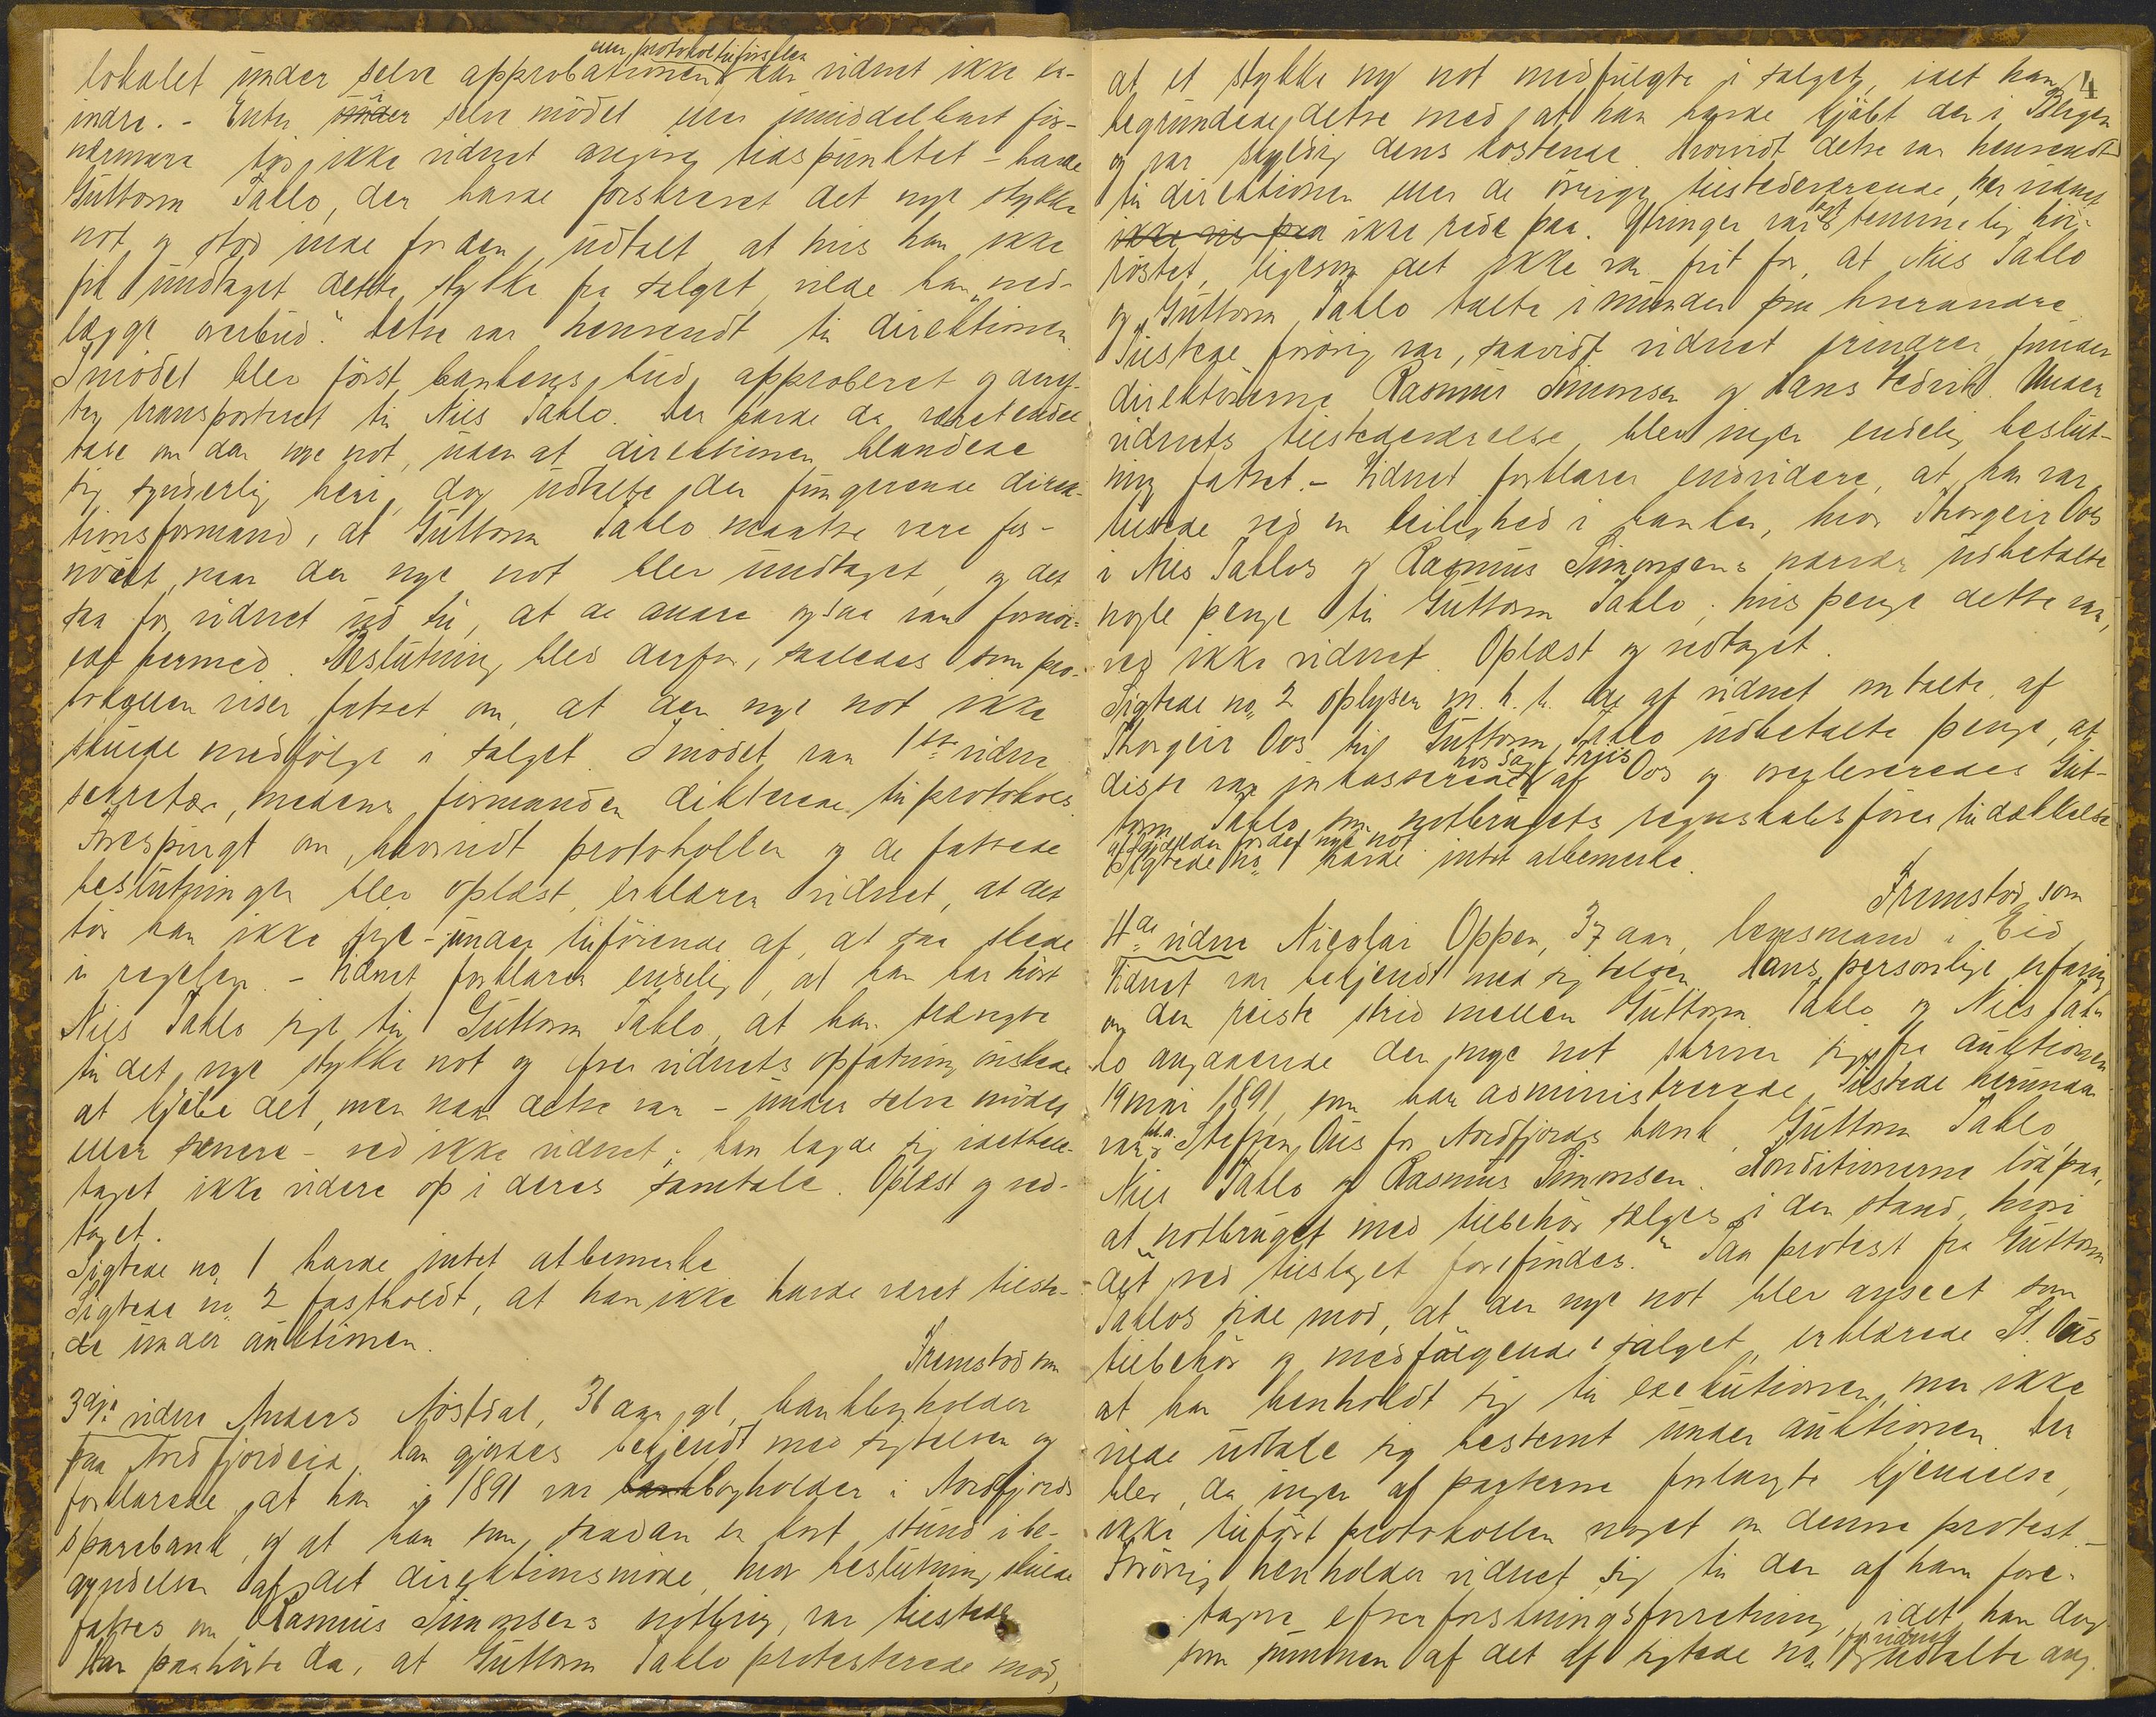 lokalet under selve approbationen eller protokoltilførselen kan vidnet ikke er-
indre. - Enten under i selve mödet eller umiddelbart for-
nærmere tör ikke vidnet angive tidspunktet - havde
Guttorm Taklo, der havde forstrakt det nye stykke
not og stod inde for den, udtalt at hvis han ikke
fik undtaget dette stykke fra salget vilde han „ned-
lægge overbud". Dette var henvendt til direktionen.
I mödet blev först bankens bud approberet og deref-
ter transporteret til Nils Taklo. Der havde da været endel
tale om den nye not, uden at direktionen blandede
sig synderlig heri, dog udtalte den fungerende direk-
tionsformand, at Guttorm Taklo maatte være for-
nöiet, naar den nye not blev undtaget, og det
saa for vidnet ud til, at de andre ogsaa var fornöi-
edt hermed. Beslutning blev derfor, saaledes som pro-
tokollen viser fattet om, at den nye not ikke
skulde medfölge i salget. I mödet var 1ste vidne
sekretær, medens formanden dikterede til protokols.
Forespurgt om, hvorvidt protokollen og de fattede
beslutninger blev oplæst, erklærer vidnet, at det
tör han ikke sige - under tilföiende af, at saa skede
i regelen. - Vidnet forklarer endelig, at han har hört
Nils Taklo sige til Guttorm Taklo, at han trængte
til det nye stykke not og efter vidnets opfatning önskede
at kjöbe det, men naar dette var - under selve mödet
eller senere - ved ikke vidnet; han lagde sig idethele-
taget ikke videre op i deres samtale. Oplæst og ved-
taget.
Sigtede no. 1 havde intet at bemerke
Sigtede no. 2 fastholdt, at han ikke havde været tilste-
de under auktionen.
Fremstod som
3die vidne Anders Nöstdal, 31 aar gl, bankbogholder
paa Nordfjordeid, han gjordes bekjendt med sigtelsen og
forklarede, at han i 1891 var bankbogholder i Nordfjords
sparebank, og at han som saadan en kort stund i be-
gyndelsen af det direktionsmöde, hvor beslutning skulde
fattes om Rasmus Simonsens notbrug, var tilstede
Han paahörte da, at Guttorm Taklo protesterede mod,
4
at et stykke ny not medfulgte i salget, idet han
begrundede dette med, at han havde kjöbt den i Bergen
og var skyldig dens kostende. Hvorvidt dette var henvendt
til direktionen eller de övrige tilstedeværende, har vidnet
ikke vis paa ikke rede paa. Ytringen var sagt temmelig höi-
röstet, ligesom det ikke var frit for, at Nils Taklo
og Guttorm Taklo talte i munden paa hverandre
Tilstede forövrig var, saavidt vidnet erindrer, foruden
direktörerne Rasmus Simonsen og Hans Hedvik. Under
vidnets tilstedeværelse blev ingen endelig beslut-
ning fattet. - Vidnet forklarer endvidere, at han var
tilstede ved en leilighed i banken, hvor Thorgeir Oos
i Nils Taklos og Rasmus Simonsens nærvær udbetalte
nogle penge til Guttorm Taklo; hvis penge dette var,
ved ikke vidnet. Oplæst og vedtaget.
Sigtede no. 2 oplyser m. h. t. de af vidnet omtalte, af
Thorgeir Oos til Guttorm Taklo udbetalte penge, at
disse var inkasserede hos Sagf. Friis af Oos og overleveredes Gut-
torm Taklo som notbrugets regnskabsförer til dækkelse
af gjælden for det nye not
Sigtede no. 1 havde intet at bemerke.
Fremstod som
4de vidne Nicolai Oppen, 37 aar, lensmand i Eid
Vidnet var bekjendt med sigtelsen. Hans personlige erfaring
om den reiste strid mellem Guttorm Taklo og Nils Tak-
lo angaaende den nye not skriver sig fra auktionen
19 mai 1891, som han administrerede. Tilstede herunder
var bl.a. Steffen Aus for Nordfjords bank, Guttorm Taklo,
Nils Taklo og Rasmus Simonsen. Konditionerne löd paa,
at „notbruget med tilbehör sælges i den stand, hvori
det ved tilslaget forefindes." Paa protest fra Guttorm
Taklos side mod, at den nye not blev anseet som
tilbehör og medfölgende i salget, erklærede St. Aus
at han henholdt sig til exekutionen, men ikke
vilde udtale sig bestemt under auktionen. Der
blev, da ingen af parterne forlangte kjendelse,
ikke tilfört protokollen noget om denne protest. -
Forövrig henholder vidnet sig til den af ham fore-
tagne efterforskningsforretning, idet han dog
som summen af det af sigtede no. 1 for vidnet udtalte ang.